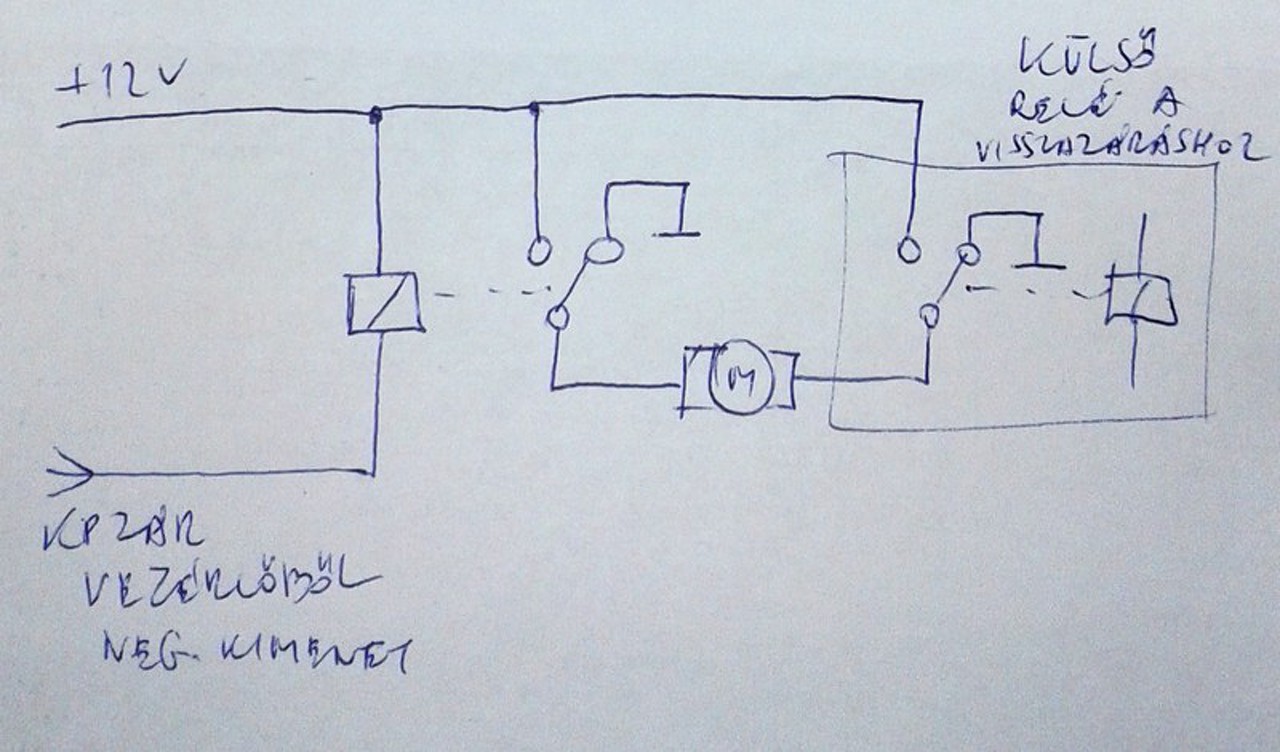 +12V
KÜLSŐ
RELÉ A
VISSZAZÁRÁSHOZ
M
KP ZÁR
VEZÉRLŐBŐL
NEG. KIMENET